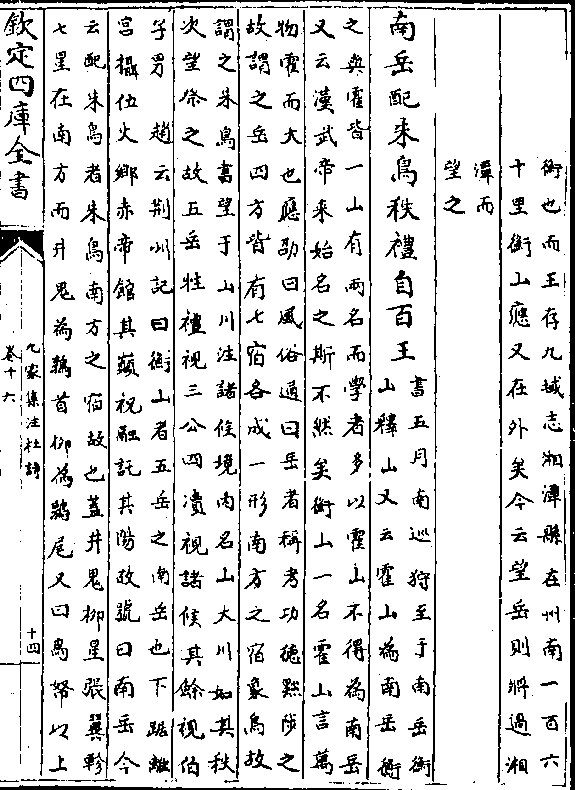 衡也而王存九域志湘潭縣在州南一百六
十里衡山應又在外矣今云望岳則將過湘
潭而
望之
南岳配朱鳥秩禮自百王
書五月南巡狩至于南岳衡
山釋山又云霍山為南岳衡
之與霍皆一山有兩名而學者多以霍山不得為南岳
又云漢武帝來始名之斯不然矣衡山一名霍山言萬
物霍而大也應劭曰風俗通曰岳者稱考功德黜陟之
故謂之岳四方皆有七宿各成一形南方之宿象鳥故
謂之朱鳥書望于山川注諸侯境内名山大川如其秩
次望祭之故五岳牲禮視三公四瀆視諸侯其餘視伯
子男 趙云荆州記曰衡山者五岳之南岳也下踞離
宫攝位火鄉赤帝館其巔祝融託其陽故號曰南岳今
云配朱鳥者朱鳥南方之宿故也蓋井鬼柳星張翼軫
七星在南方而井鬼為鶉首柳為鶉尾又曰鳥帑以上
欽定四庫全書
九家集注杜詩
卷十六
十四